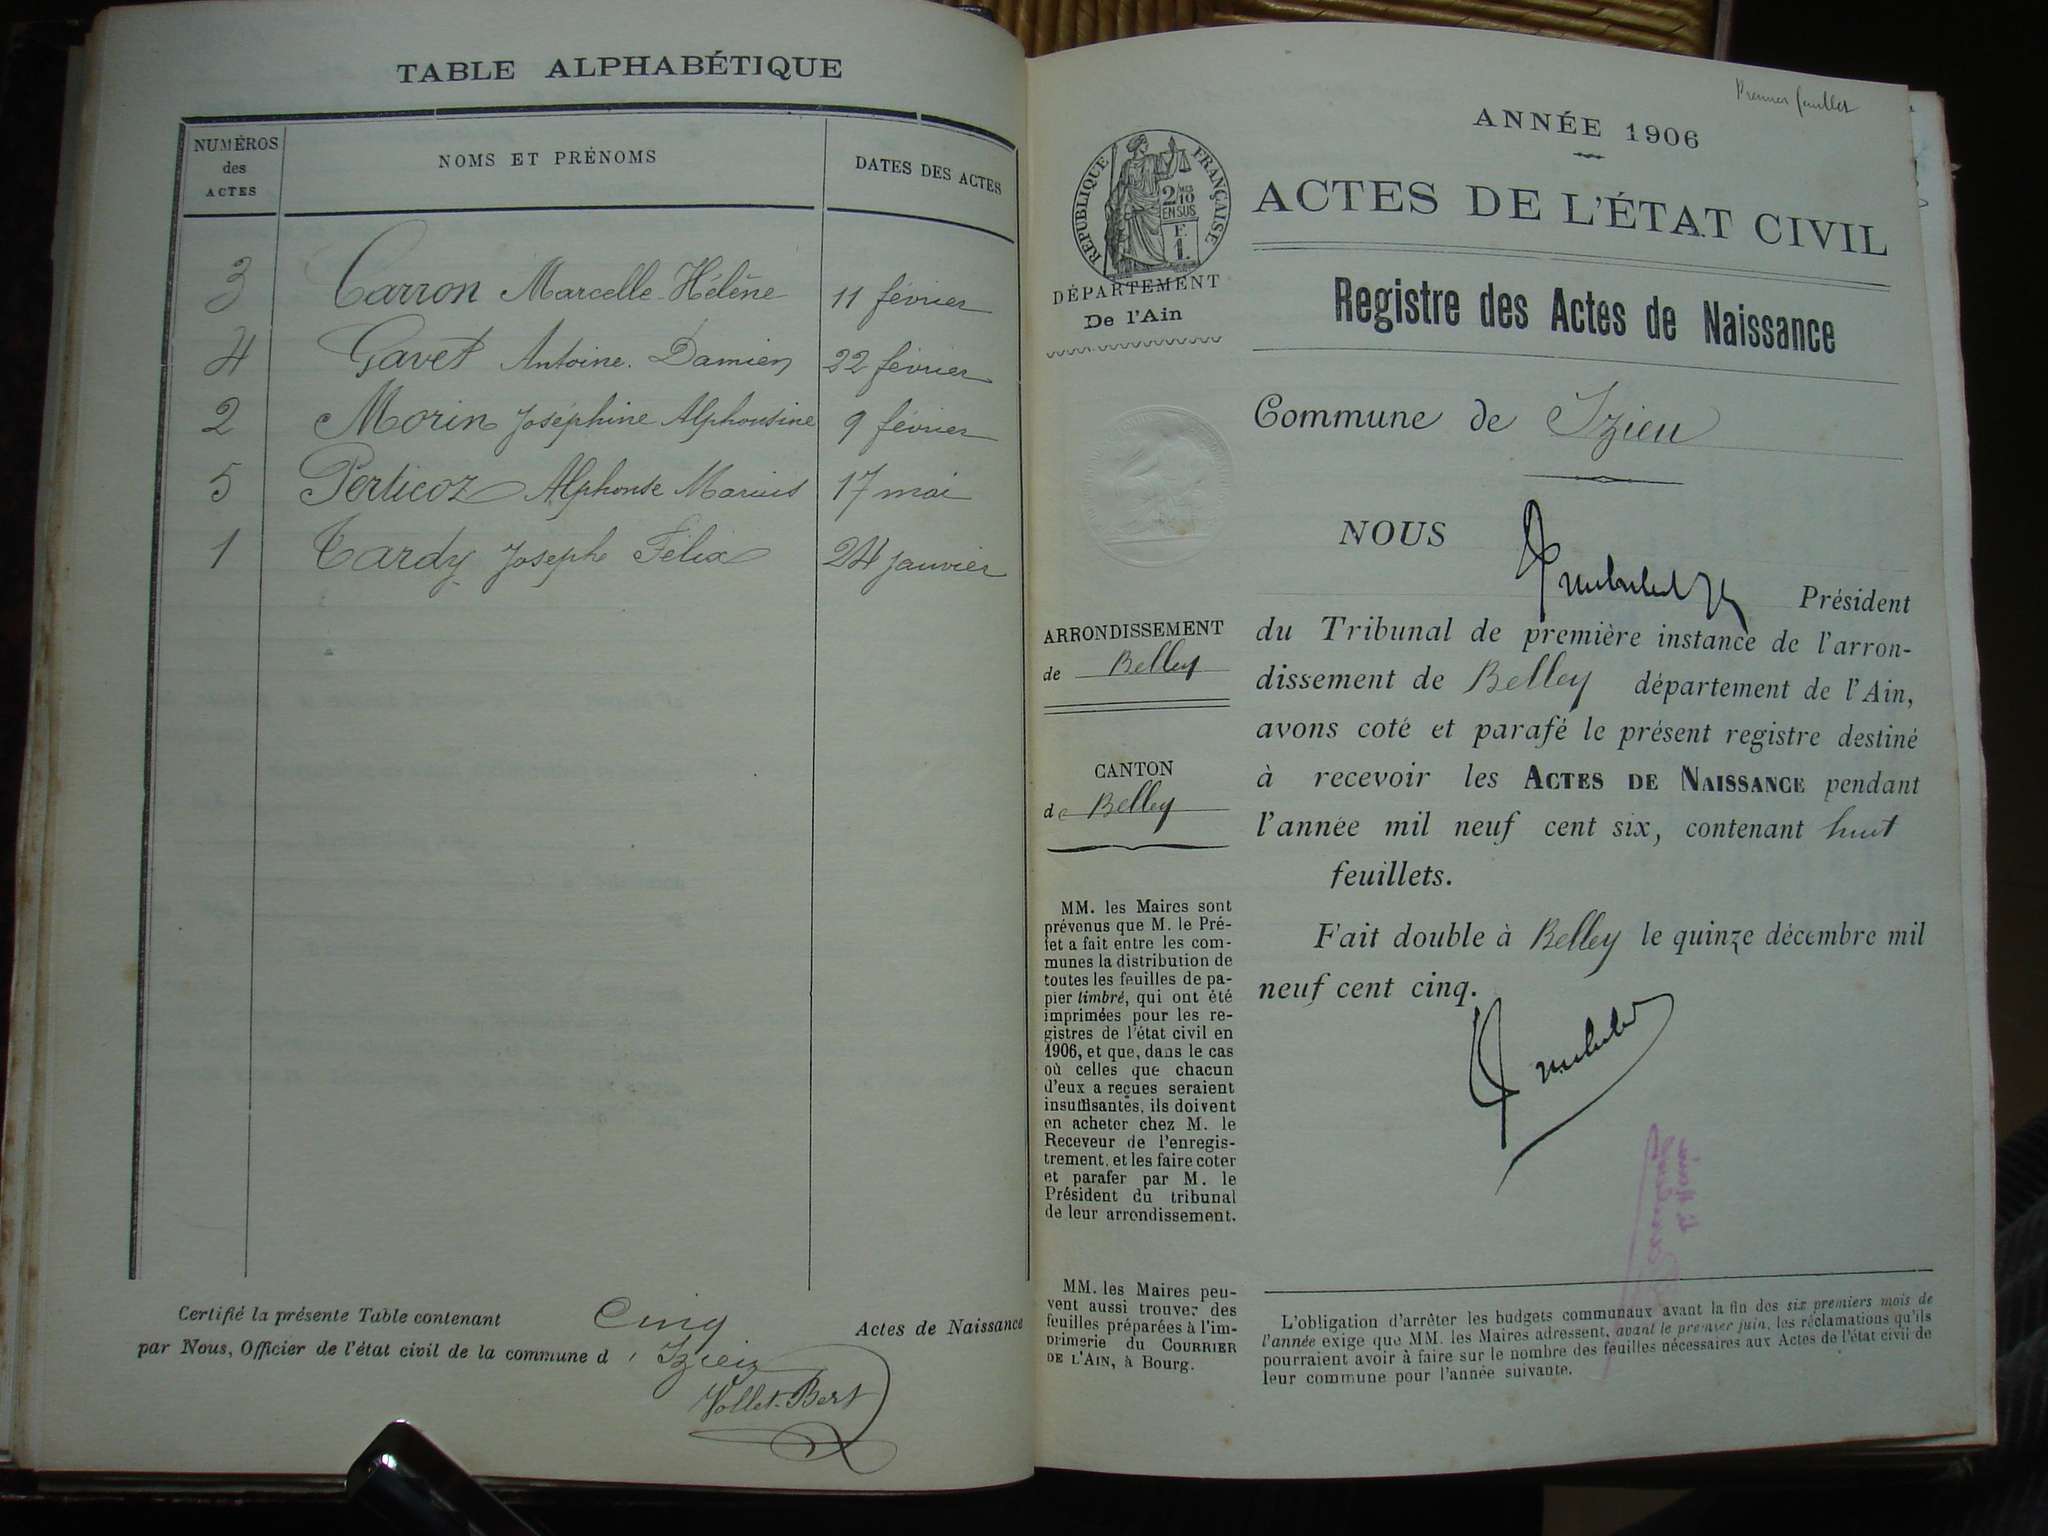 TABLE ALPHABÉTIQUE
NUMÉROS des ACTES
NOMS ET PRÉNOMS
DATES DES ACTES
3 Carron Marcelle Hélène 11 février
4 Gavet Antoine Damien 22 février
2 Morin Joséphine Alphonsine 9 février
5 Perticoz Alphonse Marius 17 mai
1 Tardy Joseph Félix 24 janvier
Certifié la présente Table contenant Cinq Actes de Naissance
par Nous, Officier de l'état civil de la commune d' Izieu
Vollet-Bert
Premier feuillet
ANNÉE 1906
ACTES DE L'ÉTAT CIVIL
RÉPUBLIQUE FRANÇAISE
2/10
EN SUS
F.
1.
DÉPARTEMENT
De l'Ain
Registre des Actes de Naissance
Commune de Izieu
NOUS
Président
du Tribunal de première instance de l'arron-
dissement de Belley département de l'Ain,
avons coté et parafé le présent registre destiné
à recevoir les ACTES DE NAISSANCE pendant
l'année mil neuf cent six, contenant huit
feuillets.
Fait double à Belley le quinze décembre mil
neuf cent cinq.
ARRONDISSEMENT
de Belley
CANTON
de Belley
MM. les Maires sont
prévenus que M. le Pré-
fet a fait entre les com-
munes la distribution de
toutes les feuilles de pa-
pier timbré, qui ont été
imprimées pour les re-
gistres de l'état civil en
1906, et que, dans le cas
où celles que chacun
d'eux a reçues seraient
insuffisantes, ils doivent
en acheter chez M. le
Receveur de l'enregis-
trement, et les faire coter
et parafer par M. le
Président du tribunal
de leur arrondissement.
MM. les Maires peu-
vent aussi trouver des
feuilles préparées à l'im-
primerie du COURRIER
DE L'AIN, à Bourg.
L'obligation d'arrêter les budgets communaux avant la fin des six premiers mois de
l'année exige que MM. les Maires adressent, avant le premier juin, les réclamations qu'ils
pourraient avoir à faire sur le nombre des feuilles nécessaires aux Actes de l'état civil de
leur commune pour l'année suivante.